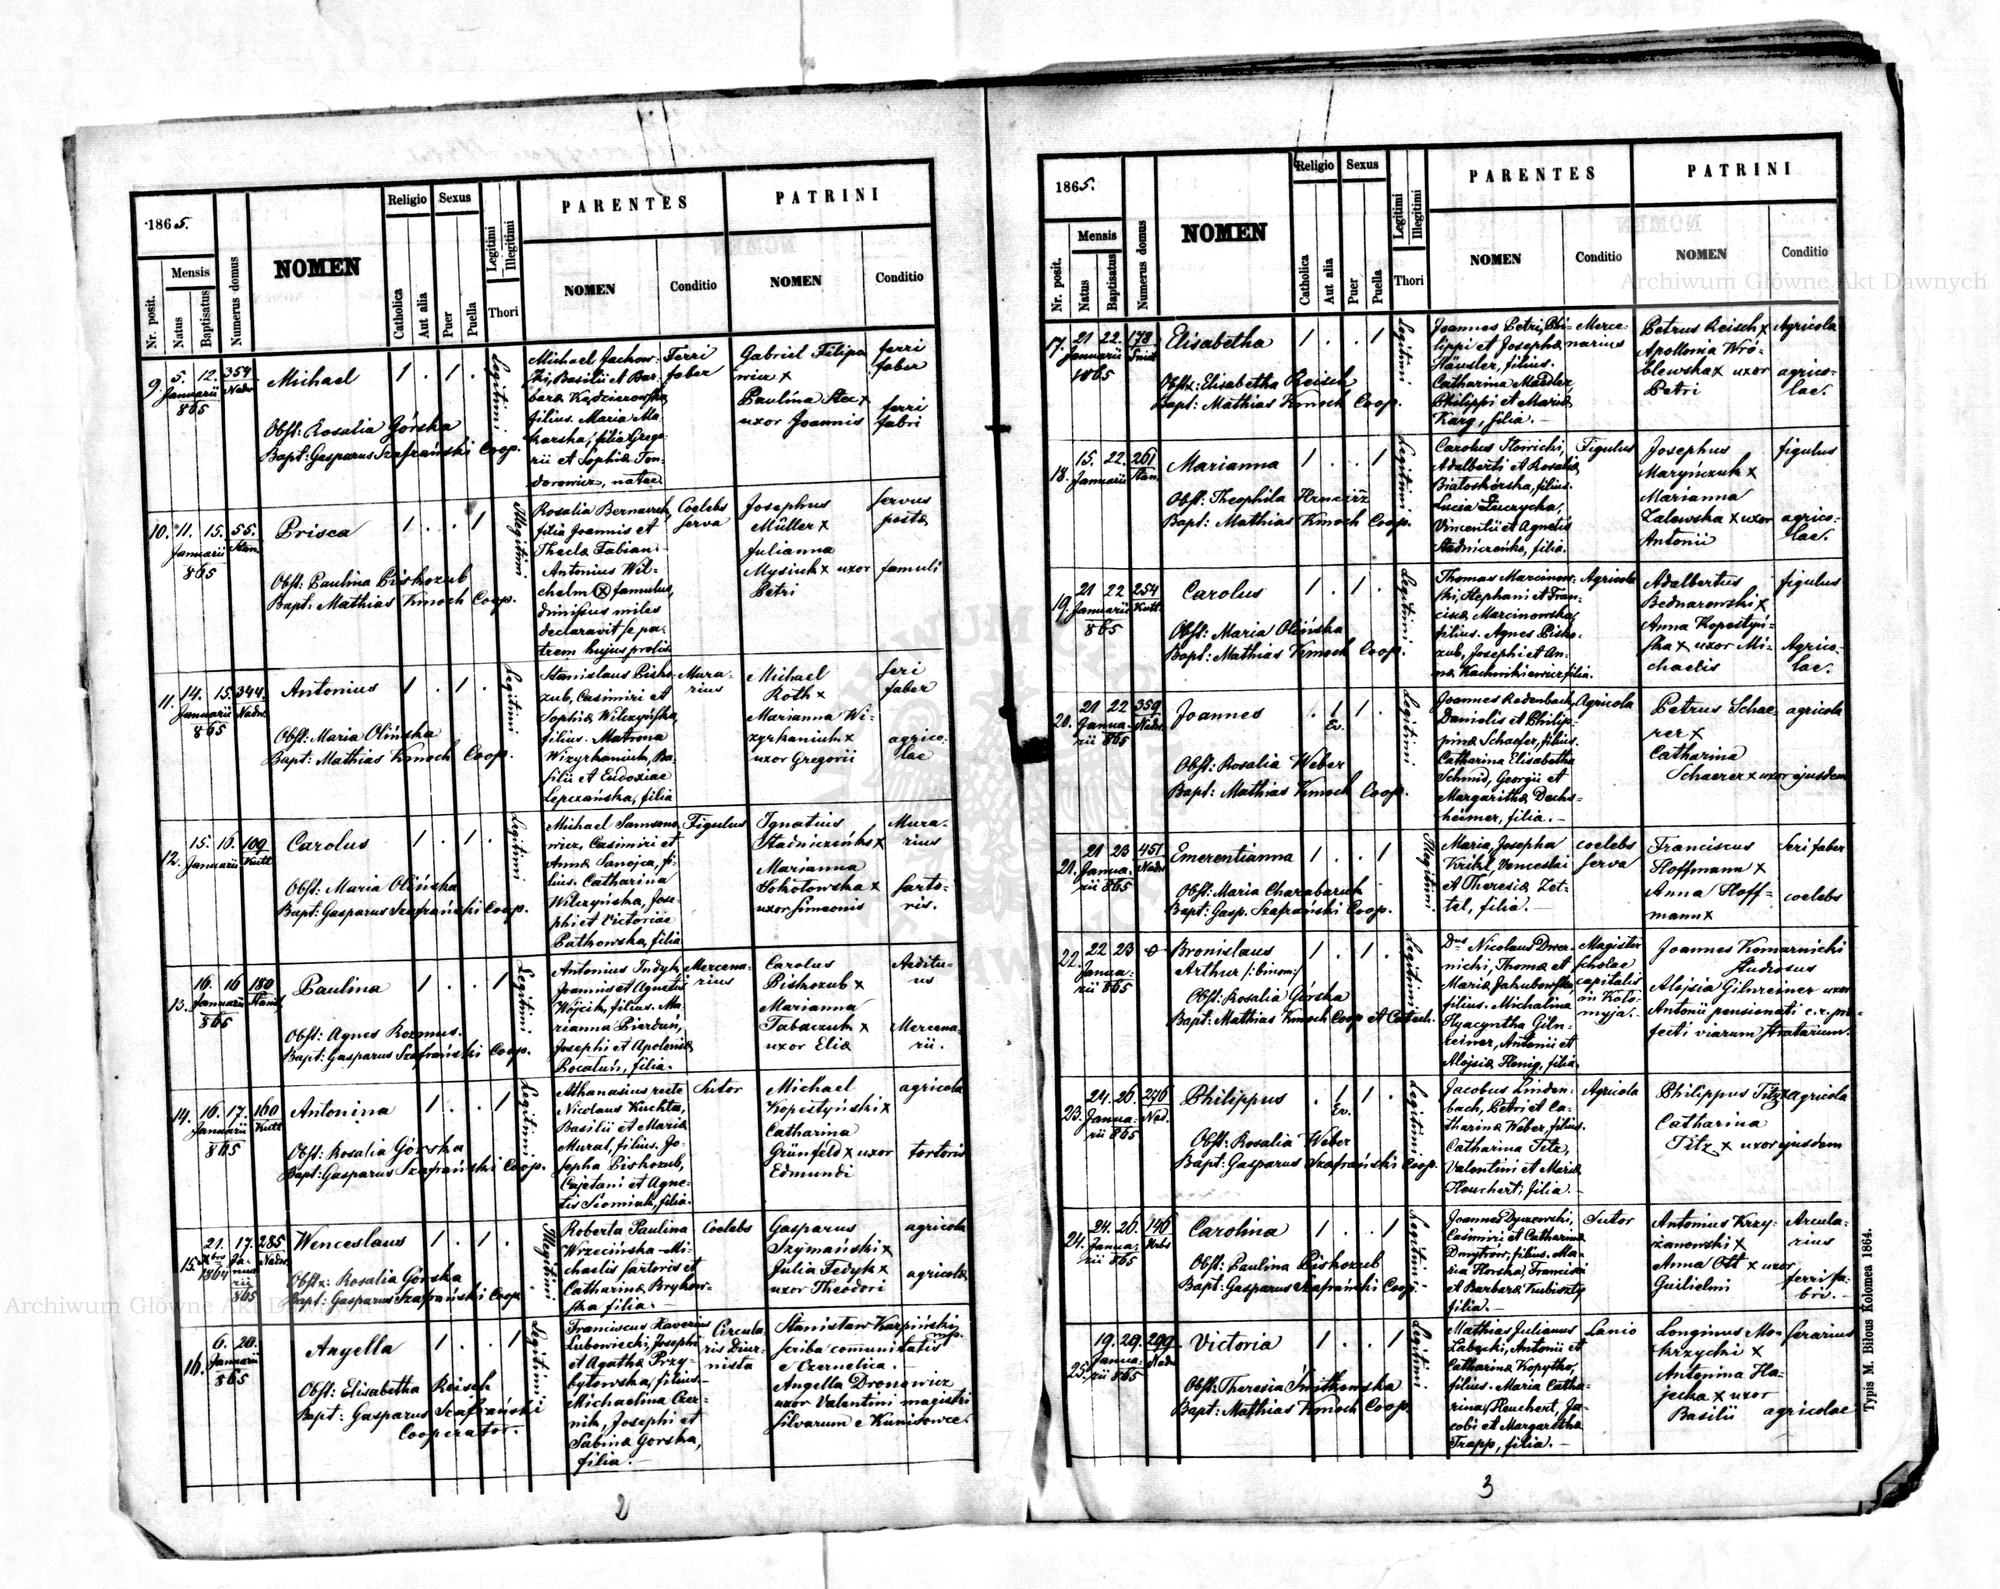 1865.
Nr. posit.
Mensis
Natus
Baptisatus
Numerus domus
NOMEN
Religio
Catholica
Aut alia
Sexus
Puer
Puella
Legitimi
Illegitimi
Thori
PARENTES
NOMEN
Conditio
PATRINI
NOMEN
Conditio
9. 5. 12. 354
Januarii Nadw.
865
Michael 1 . 1 .
Obst: Rosalia Górska
Bapt: Gasparus Szafrański Coop.
Legitimi
Michael Jachow-
ski, Basilii et Bar-
bara Kędzierowska
filius. Maria Ma-
karska, filia Grego-
rii et Sophia Ton-
dorowicz, natae
Ferri
faber
Gabriel Filipo
wicz x
Paulina Stec x
uxor Joannis
ferri
faber
ferri
fabri
10. 11. 15. 55.
Januarii Stan.
865
Prisca 1 . . 1
Obst: Paulina Piskozub
Bapt: Mathias Kmoch Coop.
Illegitimi
Rosalia Bernacek,
filia Joannis et
Thecla Fabian
Antonius Wil-
chelm x famulus,
dimissus miles
declaravit se pa-
trem hujus prolis
Coelebs
serva
Josephus
Müller x
Julianna
Mysiuk x uxor
Petri
servus
posta
famuli
11. 14. 15. 344
Januarii Nadw.
865
Antonius 1 . 1 .
Obst: Maria Olińska
Bapt: Mathias Kmoch Coop.
Legitimi
Stanislaus Pisko-
zub, Casimiri et
Sophia Wilczyńska,
filius. Matrona
Wizyrkaniuk, Ba-
silii et Eudoxiae
Lepczańska, filia
Mura-
rius
Michael
Roth x
Marianna Wi-
zyrkaniuk x
uxor Gregorii
feri
faber
agrico-
lae
12. 15. 16. 109
Januarii Kutt
Carolus 1 . 1 .
Obst: Maria Olińska
Bapt: Gasparus Szafrański Coop.
Legitimi
Michael Samsono-
wicz, Casimiri et
Anna Sanojca, fi-
lius. Catharina
Wilczyńska, Jose-
phi et Victoriae
Patkowska, filia
Figulus
Ignatius
Stadniczeńko x
Marianna
Sokołowska x
uxor Simeonis
Mura-
rius
sarto-
ris.
13. 16. 16 180
Januarii Stanisl.
865
Paulina 1 . . 1
Obst: Agnes Rozmus.
Bapt: Gasparus Szafrański Coop.
Legitimi
Antonius Indyk,
Joannis et Agnetis
Wójcik, filius. Ma-
rianna Pierduń,
Josephi et Apolonia
Pocałuń, filia.
Mercena-
rius
Carolus
Piskozub x
Marianna
Tabaczuk x
uxor Elia
Aeditu-
us
Mercena-
rii.
14. 16. 17. 160
Januarii Kutt
865
Antonina 1 . . 1
Obst: Rosalia Górska
Bapt: Gasparus Szafrański Coop.
Legitimi
Athanasius recte
Nicolaus Kuchta,
Basilii et Maria
Mural, filius. Jo-
sepha Piskozub,
Cajetani et Agne-
tis Siomiak, filia.
Sutor
Michael
Kopestyński x
Catharina
Grünfeld x uxor
Edmundi
agricola
tortoris
15. 21. 17. 285
Xbris Ja- Nadw.
1864 nua-
rii
865
Wenceslaus 1 . 1 .
Obst: Rosalia Górska
Bapt: Gasparus Szafrański Coop.
Illegitimi
Roberta Paulina
Wrzecińska Mi-
chaelis sartoris et
Catharina Brykow-
ska filia.
Coelebs
Gasparus
Szymański x
Julia Fedyk x
uxor Theodori
agricola
agricola
16. 6. 20.
Januarii
865
Anyella 1 . . 1
Obst: Elisabetha Reisch
Bapt: Gasparus Szafrański
Cooperator.
Legitimi
Franciscus Xaverius
Lubowiecki, Josephi
et Agatha Przy-
bytowska, filius.
Michaelina Czer-
nik, Josephi et
Sabina Gorska,
filia.
Circula-
ris Diur-
nista
Stanisław Karpiński
scriba comunitatis
e Czernelica.
Angella Dronowicz
uxor Valentini magistri
silvarum e Kunisowce.
2
1865.
Nr. posit.
Mensis
Natus
Baptisatus
Numerus domus
NOMEN
Religio
Catholica
Aut alia
Sexus
Puer
Puella
Legitimi
Illegitimi
Thori
PARENTES
NOMEN
Conditio
PATRINI
NOMEN
Conditio
17. 21 22. 178
Januarii Sniat.
1865
Elisabetha 1 . . 1
Obst: Elisabetha Reisch
Bapt: Mathias Kmoch Coop.
Legitimi
Joannes Petri, Phi-
lippi et Josepha
Häusler, filius.
Catharina Maedler
Philippi et Maria
Karg, filia.
Merce-
narius
Petrus Reisch x
Apollonia Wró-
blewska x uxor
Petri
Agricola
agrico-
lae.
18. 15. 22. 261
Januarii Stan.
Marianna 1 . . 1
Obst: Theophila
Bapt: Mathias Kmoch Coop.
Legitimi
Carolus Słowicki,
Adalberti et Rosalia
Białoskórska, filius.
Lucia Łuczycka,
Vincentii et Agnetis
Stadniczeńko, filia.
Figulus
Josephus
Maryńczuk x
Marianna
Zalewska x uxor
Antonii
figulus
agrico-
lae.
19. 21 22 254
Januarii Kutt.
865
Carolus 1 . 1 .
Obst: Maria Olińska
Bapt: Mathias Kmoch Coop.
Legitimi
Thomas Marcinow-
ski, Stephani et Fran-
cisca Marcinowska,
filius. Agnes Pisko-
zub, Josephi et An-
na Kachnikiewicz filia.
Agricola
Adalbertus
Bednarowski x
Anna Kopestyń-
ska x uxor Mi-
chaelis
figulus
Agrico-
lae.
20. 21 22 359
Janua- Nadw.
rii 865
Joannes . 1 1 .
Ev.
Obst: Rosalia Weber
Bapt: Mathias Kmoch Coop.
Legitimi
Joannes Redenbach,
Danielis et Philip-
pina Schaefer, filius.
Catharina Elisabetha
Schmid, Georgii et
Margaritha Dechs-
heimer, filia.
Agricola
Petrus Schae-
rer x
Catharina
Schaerer x uxor ejusdem
agricola
21. 21 23 451
Janua- Nadw.
rii 865
Emerentianna 1 . . 1
Obst: Maria Charabaruk
Bapt: Gasp. Szafrański Coop.
Illegitimi
Maria, Josepha
Krikl, Venceslai
et Theresia Zet-
tel, filia.
coelebs
serva
Franciscus
Hoffmann x
Anna Hoff-
mann x
feri faber
coelebs
22. 22 23 0
Janua-
rii 865
Bronislaus 1 . 1 .
Arthur /:binom:/
Obst: Rosalia Górska
Bapt: Mathias Kmoch Coop et Catech.
Legitimi
Dnus Nicolaus Dwer-
nicki, Thoma et
Maria Jakubowska,
filius. Michalina
Hyacyntha Giln-
reiner, Antonii et
Alojsia Honig, filia.
Magister
scholae
capitalis
in Kolo-
myja.
Joannes Komarnicki
Studiosus
Alojsia Gilnreiner uxor
Antonii pensionati c.r. prae-
fecti viarum stratarum.
23. 24. 26. 276
Janua- Nad.
rii 865
Philippus . 1 1 .
Ev.
Obst: Rosalia Weber
Bapt: Gasparus Szafrański Coop.
Legitimi
Jacobus Linden-
bach, Petri et Ca-
tharina Weber, filius.
Catharina Titz,
Valentini et Maria
Heuchert, filia.
Agricola
Philippus Titz x
Catharina
Titz x uxor ejusdem
agricola
24. 24. 26. 146
Janua-
rii 865
Carolina 1 . . 1
Obst: Paulina Piskozub
Bapt: Gasparus Szafrański Coop.
Legitimi
Joannes Dyszewski,
Casimiri et Catharina
Dmytrow, filius. Ma-
ria Horska, Francisci
et Barbara Kubiszty
filia.
Sutor
Antonius Krzy-
żanowski x
Anna Ott x uxor
Guilielmi
Arcula-
rius
ferri fa-
bri.
25. 19. 29. 299
Janua- Nadw.
rii 865
Victoria 1 . . 1
Obst: Theresia Świtkowska
Bapt: Mathias Kmoch Coop.
Legitimi
Mathias Julianus
Łabęcki, Antonii et
Catharina Kopytko,
filius. Maria Catha-
rina Heuchert, Ja-
cobi et Margaretha
Trapp, filia.
Lanio
Longinus Mo-
krzycki x
Antonina Ha-
jecka x uxor
Basilii
ferarius
agricolae
Typis M. Bilous Kolomea 1864.
3
Archiwum Główne Akt Dawnych
Archiwum Główne Akt Dawnych